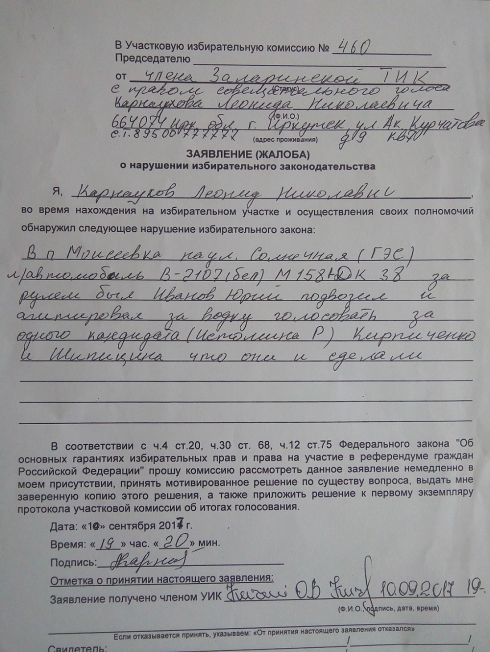 В Участковую избирательную комиссию № 460
Председателю
от члена Заларинской ТИК
(статус)
с правом совещательного голоса
Карнаухова Леонида Николаевича
(Ф.И.О.)
664074 обл г. Иркутск ул Ак. Курчатова
с.т. 89500777772 (адрес проживания) д 9 кв
ЗАЯВЛЕНИЕ (ЖАЛОБА)
о нарушении избирательного законодательства
Я, Карнаухов Леонид Николаевич,
во время нахождения на избирательном участке и осуществления своих полномочий
обнаружил следующее нарушение избирательного закона:
В п Моисеевка на ул. Солнечная (ГЭС)
л/автомобиль В-2107 (бел) М 158 К 38 за
рулем был Иванов Юрий подвозил и
агитировал за водку голосовать за
одного кандидата (Истомина Р) Кирпиченко
и Шипицина что они и сделали
В соответствии с ч.4 ст.20, ч.30 ст. 68, ч.12 ст.75 Федерального закона "Об
основных гарантиях избирательных прав и права на участие в референдуме граждан
Российской Федерации" прошу комиссию рассмотреть данное заявление немедленно в
моем присутствии, принять мотивированное решение по существу вопроса, выдать мне
заверенную копию этого решения, а также приложить решение к первому экземпляру
протокола участковой комиссии об итогах голосования.
Дата: «10» сентября 2017 г.
Время: «19» час. «20» мин.
Подпись:
Отметка о принятии настоящего заявления:
Заявление получено членом УИК О.В 10.09.2017 19-
(Ф.И.О., подпись, дата, время)
Если отказывается принять, указываем: «От принятия настоящего заявления отказался»
Свидетель: